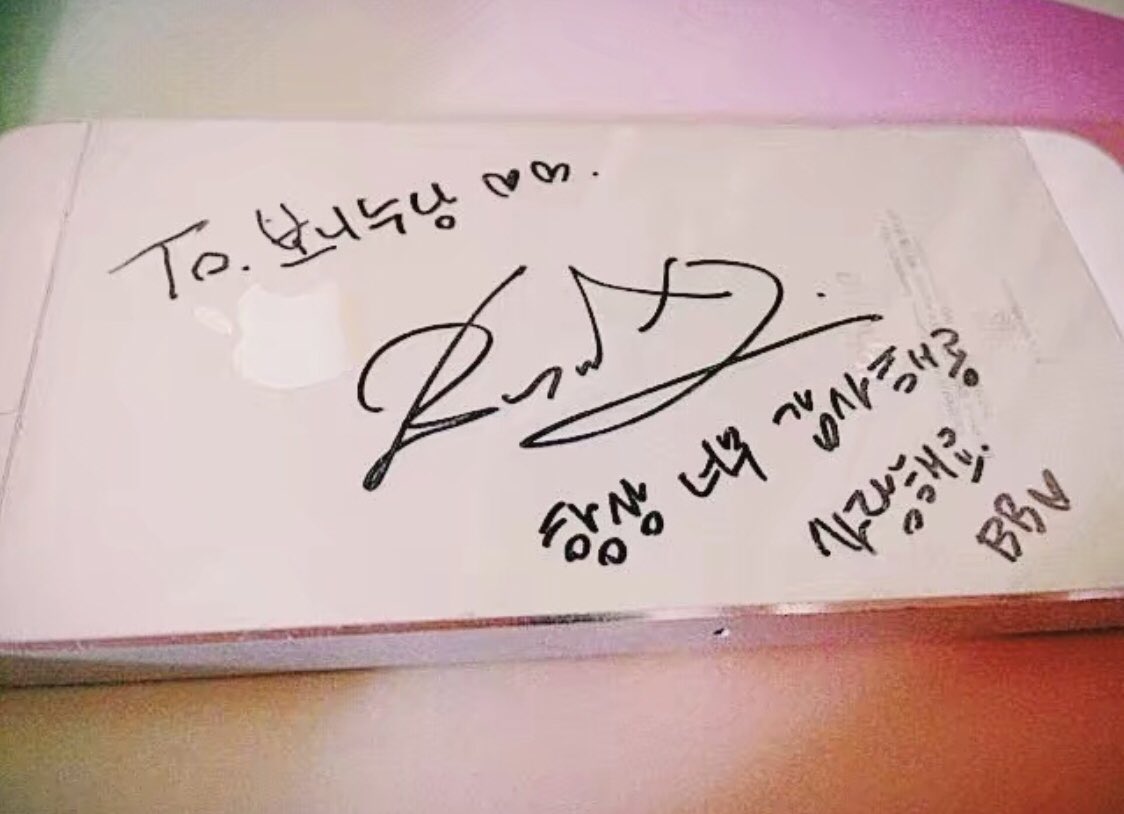 To. 보니누낭 ♡♡.
항상 너무 감사해용
사랑해요.
BBV